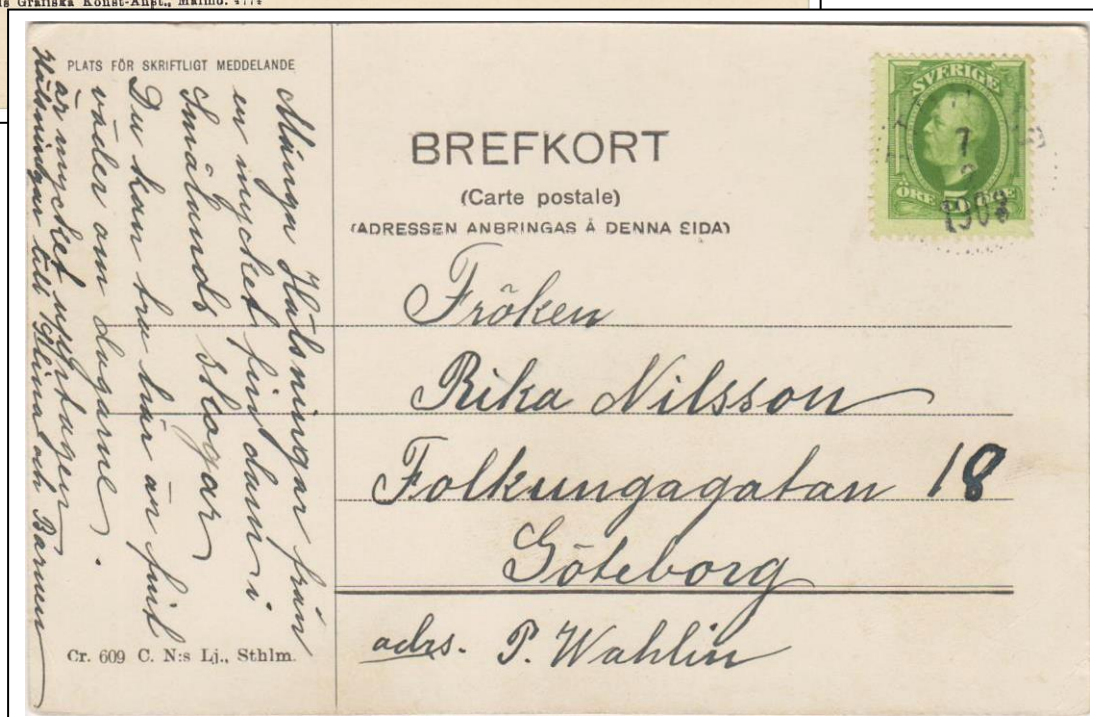 s Grafiska Konst-Anst., Malmö. 4774
PLATS FÖR SKRIFTLIGT MEDDELANDE
Många Hälsningar från
en mycket fin dam i
Smålands skogar
Du kan tru här är fint
väder om dagarne.
är mycket upptagen
Hälsningar till Helma och Barnen
Cr. 609 C. N:s Lj., Sthlm.
BREFKORT
(Carte postale)
(ADRESSEN ANBRINGAS Å DENNA SIDA)
SVERIGE
ÖRE 5 ÖRE
7
1908
Fröken
Rika Nilsson
Folkungagatan 18
Göteborg
adrs. P. Wahlin